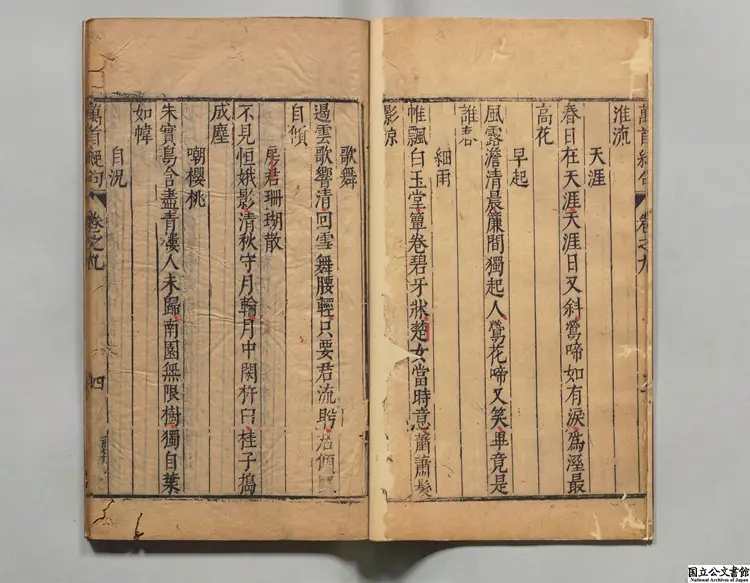 萬首絕句 卷之九
淮流
天涯
春日在天涯天涯日又斜鶯啼如有淚為溼最
高花
早起
風露澹清晨簾間獨起人鶯花啼又笑畢竟是
誰春
細雨
帷飄白玉堂簟卷碧牙牀楚女當時意蕭蕭髮
影凉
歌舞
遏雲歌響清回雪舞腰輕只要君流眄君傾國
自傾
房君珊瑚散
不見恒娥影清秋守月輪月中閑杵臼桂子搗
成塵
嘲櫻桃
朱實鳥含盡青樓人未歸南園無限樹獨自葉
如幃
自況
萬首絕句 卷之九 四
国立公文書館
National Archives of Japan